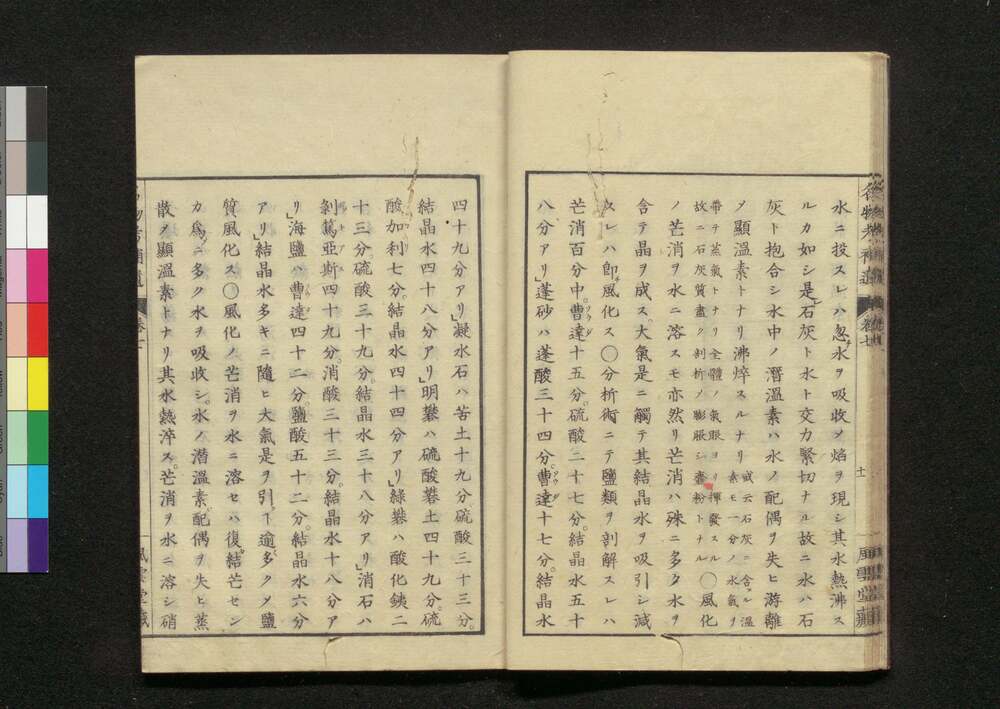 水ニ投スレハ忽水ヲ吸收メ焰ヲ現シ其水熱沸ス
ルカ如シ是石灰ト水ト交力緊切ナル故ニ水ハ石
灰ト抱合シ水中ノ潛溫素ハ水ノ配偶ヲ失ヒ游離
メ顯溫素トナリ沸焠スルナリ 或云石灰ニ含ム溫素モ一分ノ水氣ヲ
帶テ蒸氣トナリ全體ノ氣眼ヨリ揮發スル故ニ石灰質盡ク剖析ノ膨脹シ粉トナル 〇風化
ノ芒消ヲ水ニ溶スモ亦然リ芒消ハ殊ニ多ク水ヲ
含テ晶ヲ成ス大氣是ニ觸テ其結晶水ヲ吸引シ減
レハ卽風化ス〇分析術ニテ鹽類ヲ剖解スレハ
芒消百分中曹達十五分硫酸二十七分結晶水五十
八分アリ蓬砂ハ蓬酸三十四分曹達十七分結晶水
四十九分アリ凝水石ハ苦土十九分硫酸三十三分
結晶水四十八分アリ明礬ハ硫酸礬土四十九分硫
酸加利七分結晶水四十四分アリ綠礬ハ酸化銕二
十三分硫酸三十九分結晶水三十八分アリ消石ハ
剝篤亞斯四十九分消酸三十三分結晶水十八分ア
リ海鹽ハ曹達四十二分鹽酸五十二分結晶水六分
アリ結晶水多キニ隨ヒ大氣是ヲ引ー逾多クメ鹽
質風化ス〇風化ノ芒消ヲ水ニ溶セハ復結芒セン
カ爲ニ多ク水ヲ吸收シ水ノ潛溫素配偶ヲ失ヒ蒸
散メ顯溫素トナリ其水熱淬ス芒消ヲ水ニ溶シ硝